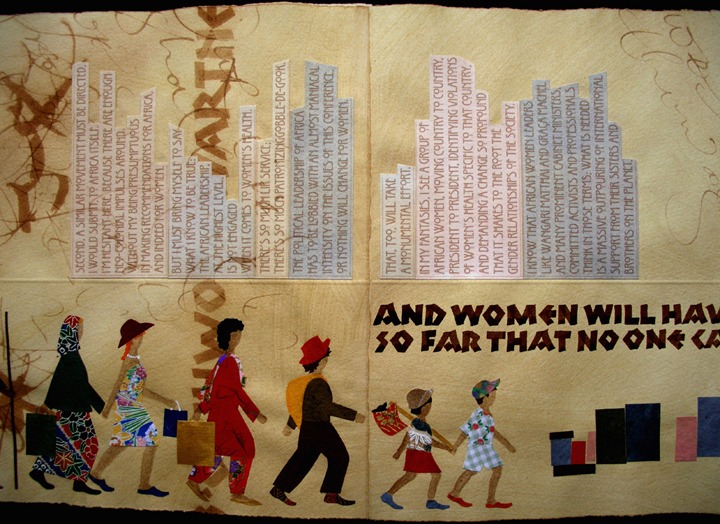 SECOND, A SIMILAR MOVEMENT MUST BE DIRECTED,
WOULD SUBMIT, TO AFRICA ITSELF.
I'M HESITANT HERE, BECAUSE THERE ARE ENOUGH
NEO-COLONIAL IMPULSES AROUND,
WITHOUT MY BEING PRESUMPTUOUS
IN MAKING RECOMMENDATIONS FOR AFRICA,
AND INDEED FOR WOMEN.
BUT I MUST BRING MYSELF TO SAY
WHAT I KNOW TO BE TRUE:
THE AFRICAN LEADERSHIP,
AT THE HIGHEST LEVEL,
IS NOT ENGAGED
WHEN IT COMES TO WOMEN'S HEALTH.
THERE'S SO MUCH LIP SERVICE;
THERE'S SO MUCH PATRONIZING GOBBLE-DE-GOOK.
THE POLITICAL LEADERSHIP OF AFRICA
HAS TO BE LOBBIED WITH AN ALMOST MANIACAL
INTENSITY ON THE ISSUES OF THIS CONFERENCE,
OR NOTHING WILL CHANGE FOR WOMEN.
THAT, TOO, WILL TAKE
A MONUMENTAL EFFORT.
IN MY FANTASIES, I SEE A GROUP OF
AFRICAN WOMEN, MOVING COUNTRY TO COUNTRY,
PRESIDENT TO PRESIDENT, IDENTIFYING VIOLATIONS
OF WOMEN'S HEALTH SPECIFIC TO THAT COUNTRY,
AND DEMANDING A CHANGE SO PROFOUND
THAT IT SHAKES TO THE ROOT THE
GENDER RELATIONSHIPS OF THE SOCIETY.
I KNOW THAT AFRICAN WOMEN LEADERS
LIKE WANGARI MATTHAI AND GRAÇA MACHEL
AND MANY PROMINENT CABINET MINISTERS,
COMMITTED ACTIVISTS AND PROFESSIONALS,
THINK IN THOSE TERMS: WHAT IS NEEDED
IS A MASSIVE OUTPOURING OF INTERNATIONAL
SUPPORT FROM THEIR SISTERS AND
BROTHERS ON THE PLANET.
AND WOMEN WILL HAV
SO FAR THAT NO ONE CA